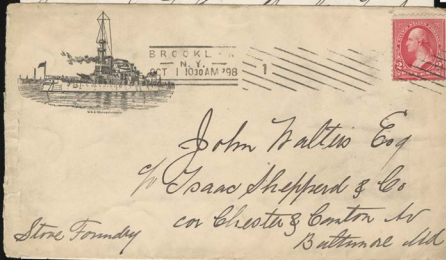 BROOKL
N.Y.
OCT 1 1030AM '98
1
2
John Walters Esq
c/o Isaac Shepperd & Co
cor Chester & Canton Av
Baltimore Md
Stove Foundry